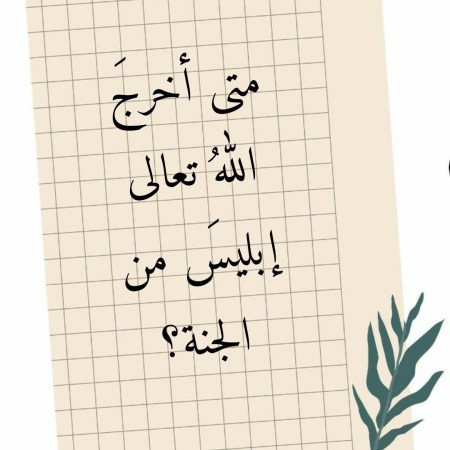 متى أخرجَ
اللهُ تعالى
إبليسَ من
الجنة؟